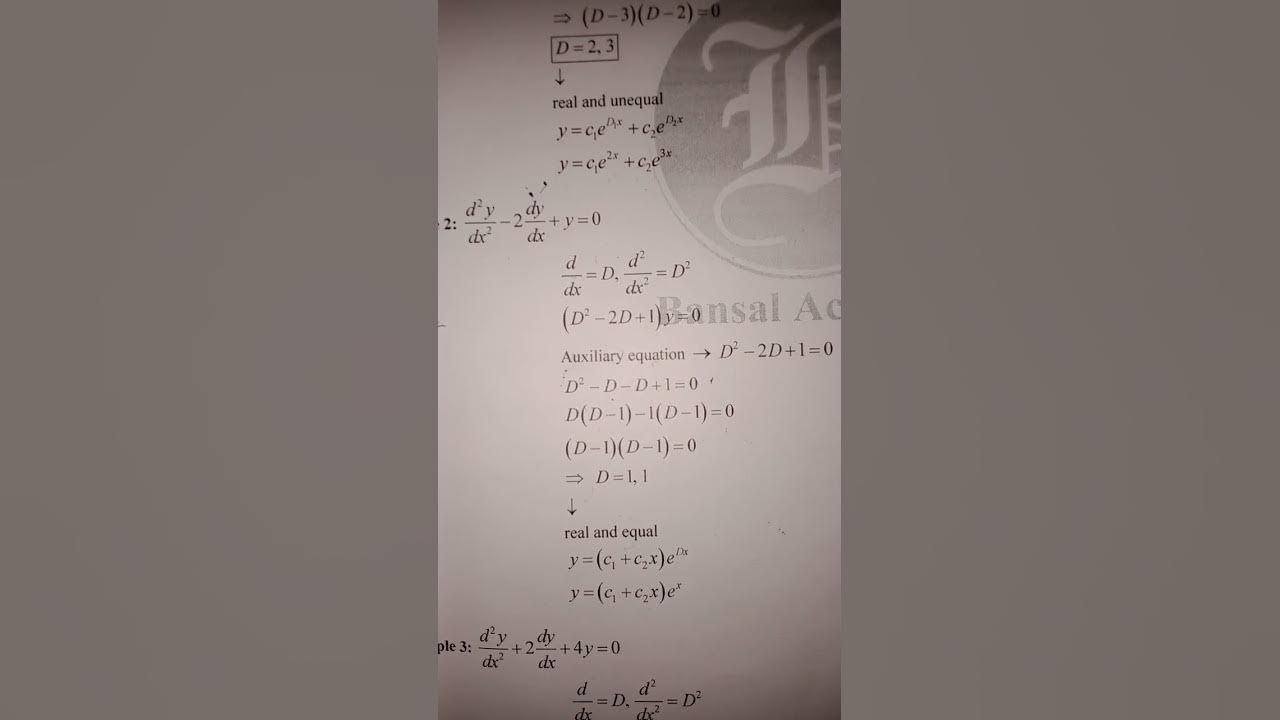 ⇒ (D−3)(D−2)=0
D = 2, 3
↓
real and unequal
y = c₁e^{D₁x} + c₂e^{D₂x}
y = c₁e^{2x} + c₂e^{3x}
2: d²y/dx² − 2 dy/dx + y = 0
d/dx = D, d²/dx² = D²
(D² − 2D + 1) y = 0
Bansal Ac
Auxiliary equation → D² − 2D + 1 = 0
D² − D − D + 1 = 0
D(D−1) − 1(D−1) = 0
(D−1)(D−1) = 0
⇒ D = 1, 1
↓
real and equal
y = (c₁ + c₂x)e^{Dx}
y = (c₁ + c₂x)e^{x}
ple 3: d²y/dx² + 2 dy/dx + 4y = 0
d/dx = D, d²/dx² = D²